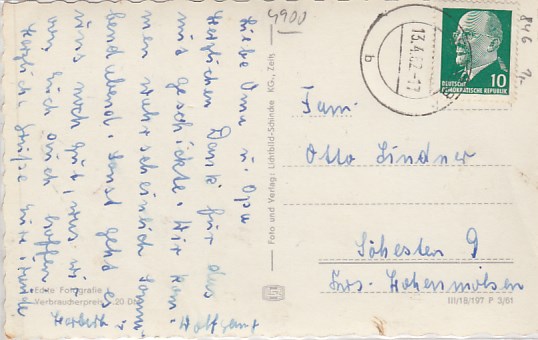 4900
846
Liebe Oma u. Opa
Herzlichen Dank für das
mitgeschickte. Wir kom-
men wahrscheinlich Sonna-
bendabend. Sonst geht es
uns noch gut, was wir
von Euch auch hoffen
Herzliche Grüße Eure
Herbert
Wolfgang
Echte Fotografie
Verbraucherpreis 20 DPf
Foto und Verlag: Lichtbild-Schincke KG., Zeitz
13.4.62-17
b
DEUTSCHE
DEMOKRATISCHE REPUBLIK
10
Fam.
Otto Lindner
Söhesten 9
Krs. Hohenmölsen
III/18/197 P 3/61